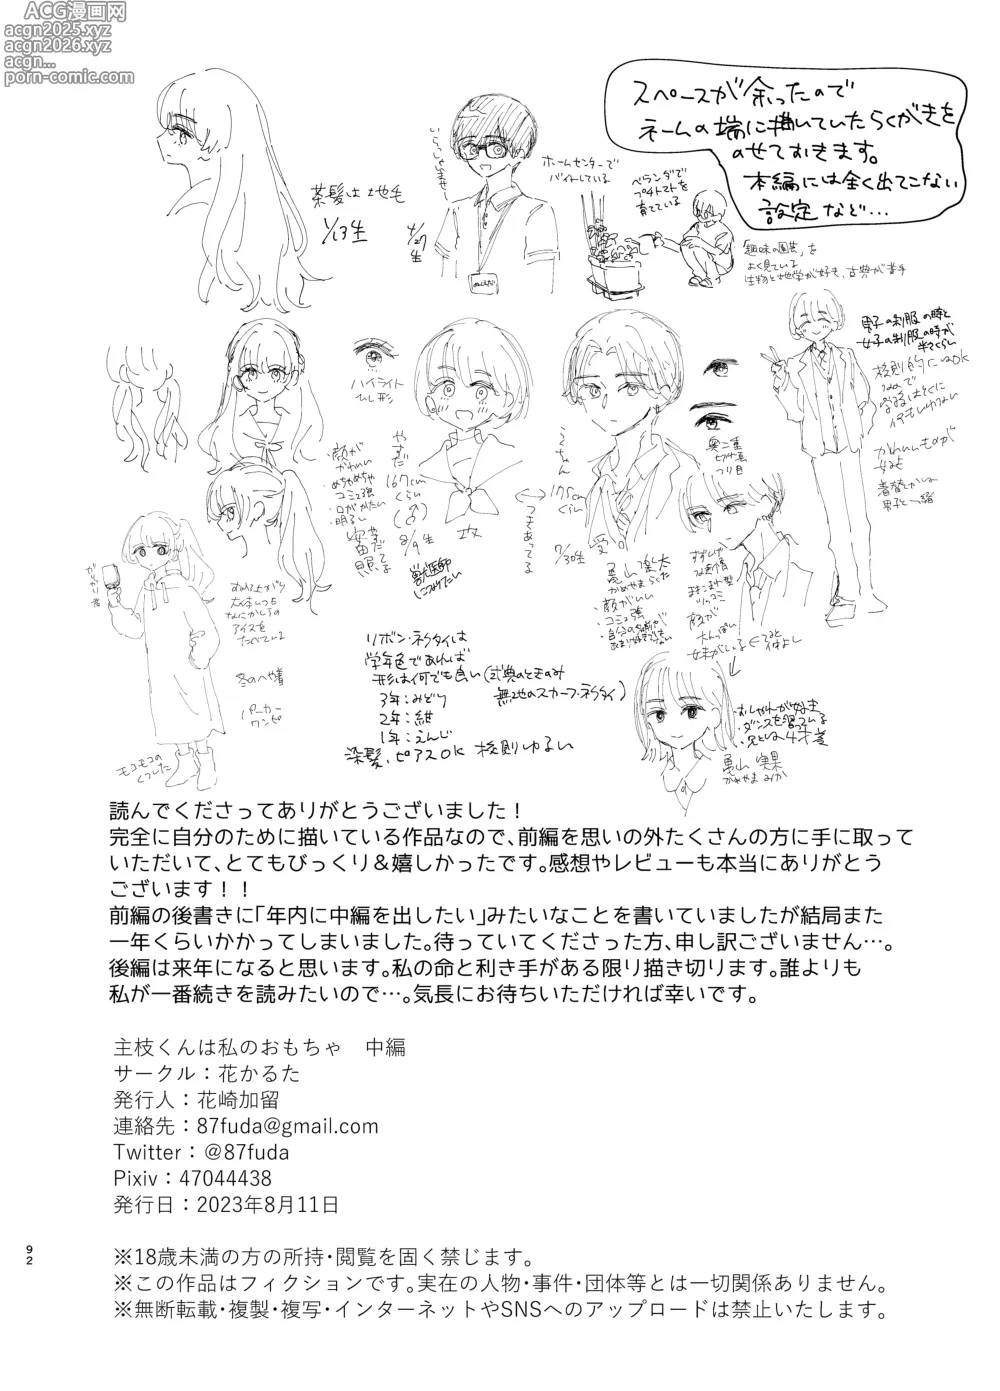 ACG漫画网
acgn2025.xyz
acgn2026.xyz
acgn...
porn-comic.com
スペースが余ったので
ネームの端に描いていたらくがきを
のせておきます。
本編には全く出てこない
設定など…
茶髪は地毛
1/13生
いらっしゃいませ
4/27生
ホームセンターで
バイトしている
ベランダで
プチトマトを
育てている
「趣味の園芸」を
よく見ている
生物と地学が好き、古典が苦手
男子の制服の時と
女子の制服の時が
半々くらい
校則的にはOK
かわいいものが
好き
着替えとかは
男子と一緒
ハイライト
ひし形
・顔が
かわいい
めちゃめちゃ
コミュ強
・口がかたい
・明るい
やすだ
167cm
くらい
(♂)
8/9生
獣医師
になりたい
攻
つきあってる
175cm
くらい
7/30生
受
奥二重
切れ長
つり目
・顔がいい
・コミュ強
大人っぽい
妹がいる
仲よし
・おしゃれが好き
・ダンスを習っている
・兄とは4才差
かめやま みか
冬のへや着
パーカー
ワンピ
モコモコの
くつした
リボン・ネクタイは
学年色であれば
形は何でも良い(式典のときのみ
無地のスカーフ・ネクタイ)
3年:みどり
2年:紺
1年:えんじ
染髪、ピアスOK 校則ゆるい
読んでくださってありがとうございました！
完全に自分のために描いている作品なので、前編を思いの外たくさんの方に手に取って
いただいて、とてもびっくり＆嬉しかったです。感想やレビューも本当にありがとう
ございます！！
前編の後書きに「年内に中編を出したい」みたいなことを書いていましたが結局また
一年くらいかかってしまいました。待っていてくださった方、申し訳ございません…。
後編は来年になると思います。私の命と利き手がある限り描き切ります。誰よりも
私が一番続きを読みたいので…。気長にお待ちいただければ幸いです。
主枝くんは私のおもちゃ　中編
サークル：花かるた
発行人：花崎加留
連絡先：87fuda@gmail.com
Twitter：@87fuda
Pixiv：47044438
発行日：2023年8月11日
※18歳未満の方の所持・閲覧を固く禁じます。
※この作品はフィクションです。実在の人物・事件・団体等とは一切関係ありません。
※無断転載・複製・複写・インターネットやSNSへのアップロードは禁止いたします。
92